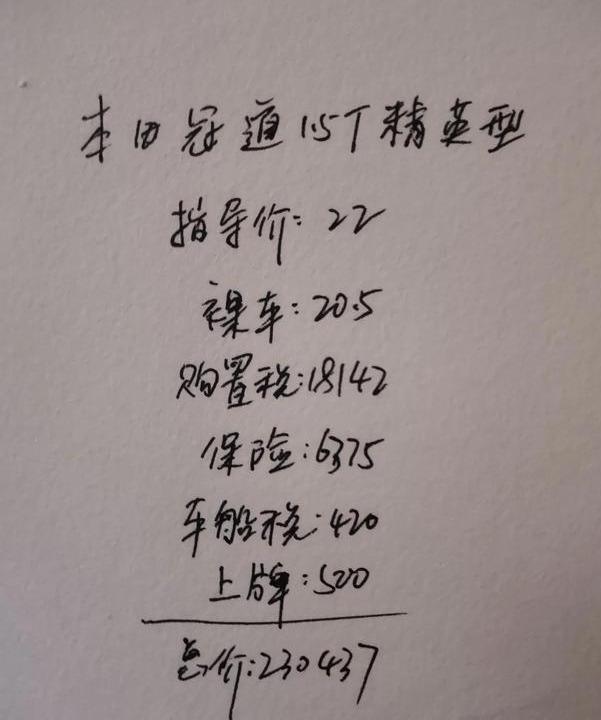 本田冠道1.5T精英型
指导价:22
裸车:20.5
购置税:18142
保险:6375
车船税:420
上牌:500
总价:230437